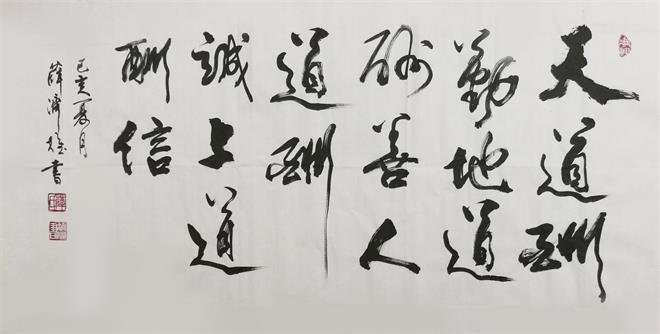 天道酬
勤地道
酬善人
道酬
誠商道
酬信
己亥夏月
薛 書